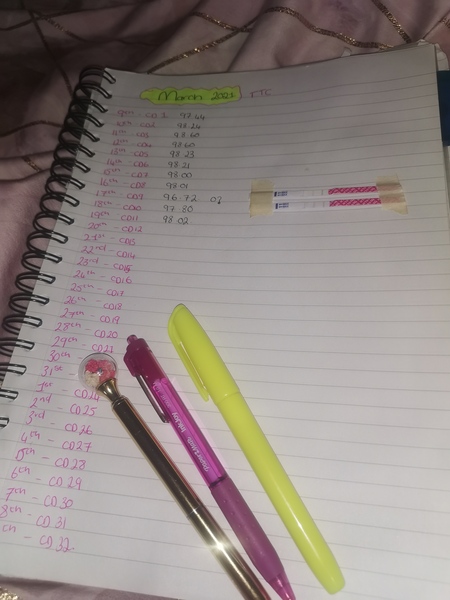 March 2021 TTC
9th - CD 1 97.44
10th - CD2 98.24
11th - CD3 98.60
12th - CD4 98.60
13th - CD5 98.23
14th - CD6 98.21
15th - CD7 98.00
16th - CD8 98.01
17th - CD9 96.72
18th - CD10 97.80
19th - CD11 98.02
20th - CD12
21st - CD13
22nd - CD14
23rd - CD15
24th - CD16
25th - CD17
26th - CD18
27th - CD19
28th - CD20
29th - CD21
30th -
31st
1st CD24
2nd - CD25
3rd - CD26
4th - CD27
5th - CD28
6th - CD29
7th - CD30
8th - CD31
th - CD32
papermate InkJoy